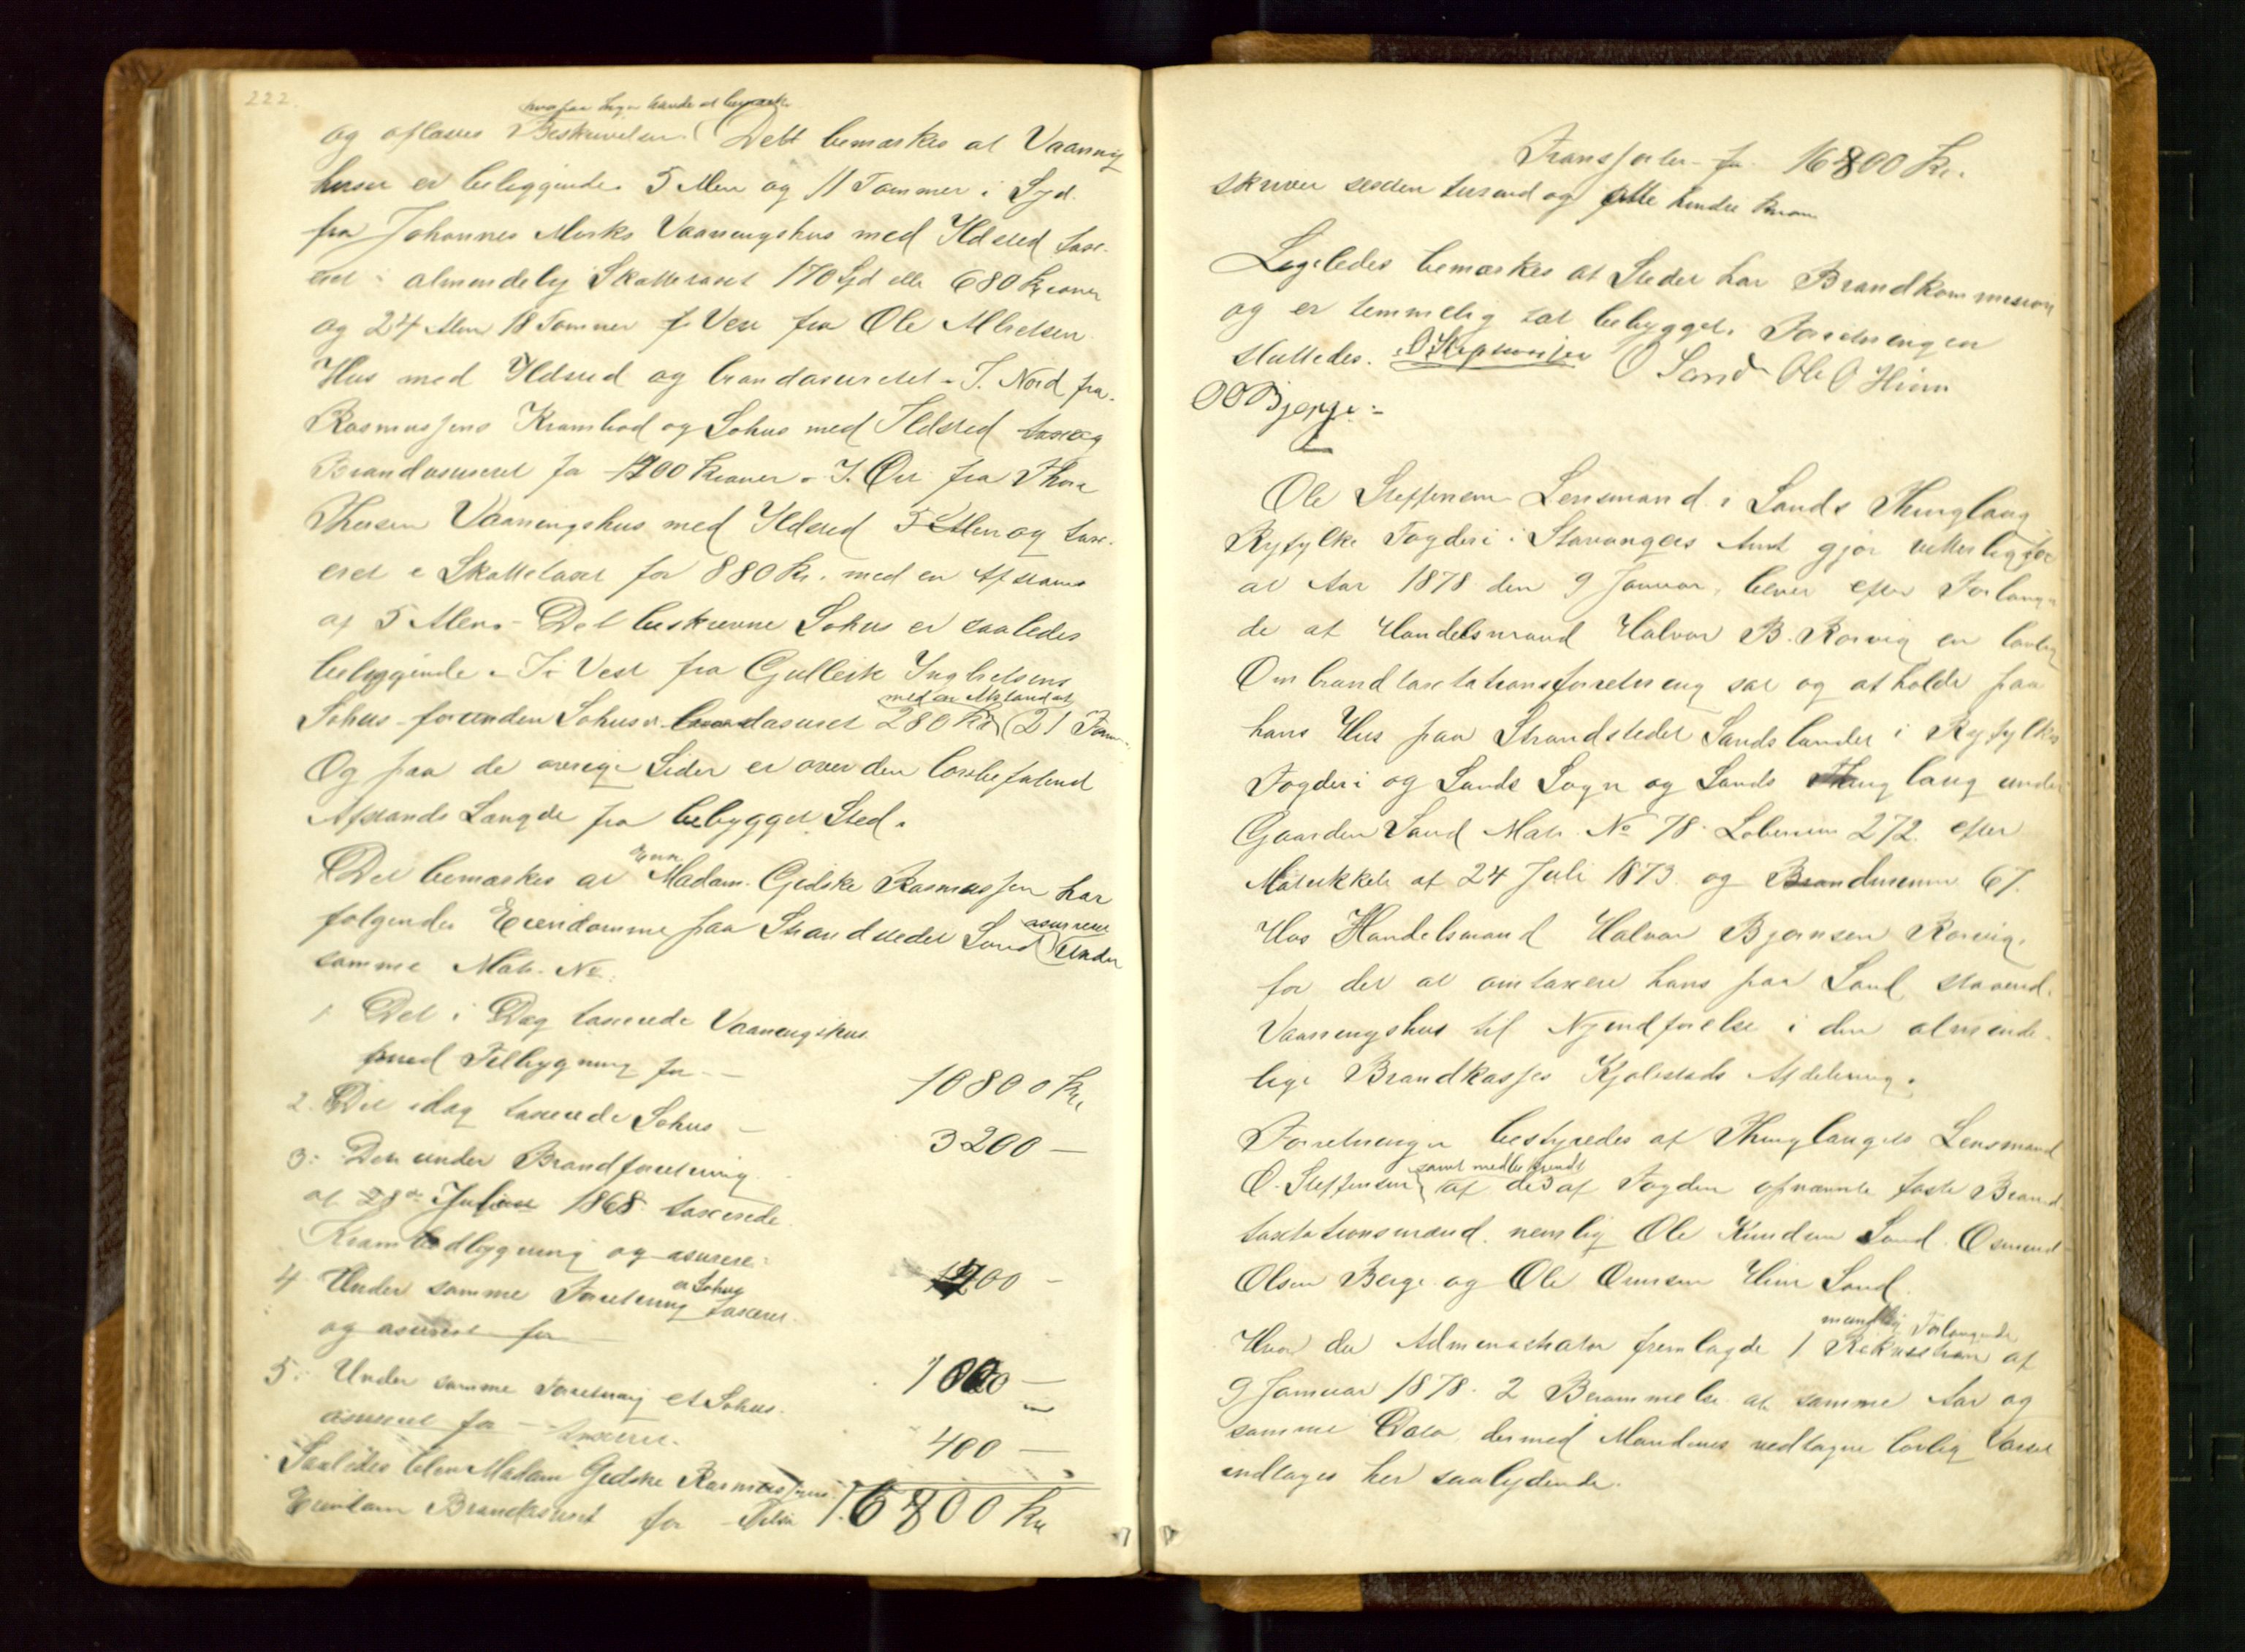 222.
og oplæses Beskrivelsen. Dett bemærkes at Vaaning
huset er beliggende 5 Alen og 11 Tommer i Syd.
fra Johannes Mosks Vaaningshus med Ildsted taxe-
ret i almindelig Skattetaxt 170 Spd eller 680 Kroner
og 24 Alen 18 Tommer i Vest fra Ole
Hus med Ildsted og brandasureret - I. Nord fra
Rasmussens Krambod og Søhus med Ildsted taxt og
Brandasureret for 1200 Kroner - I. Øst fra Thore
Thorsen Vaaningshus med Ildsted 5 Alen og taxe-
eret i Skattetaxt for 880 Kr. med en Afstand
af 5 Alen - Det beskrevne Søhus er saaledes
beliggende - I. Vest fra Gulleik Ingbretsens
med en Afstand af
Søhus - Søhus er brandasuret 280 Kr. 21 Tom
Og paa de øvrige Sider er over den lovbefalend
Afstands Længde fra bebygget Sted.
Enke
Det bemærkes at Madam Gidske Rasmussen har
asureret
følgende Eiendomme paa Strandstedet Sand under
samme Matr. No.
1 Det i Dag taxerede Vaaningshus
med Tilbygning for - 10800 Kr.
2. Det idag taxerede Søhus - 3200 -
3: Den under Brandforretning
af 28de 1868 taxerede
Krambodbygning og asurere: 1200 -
et Søhus
4 Under samme Forretning taxeret
og asureret for 1000 -
5: Under samme Forretning et Søhus
asureret for - taxeret. 400 -
Saaledes blev Madam Gidske Rasmussens
Eiendom Brandasuret for 16800 Kr
Transporter for 16800 Kr.
skriver sexten tusend og otte hundre Kroner
Ligeledes bemærkes at Stedet har Brandkommission
og er temmelig tæt bebygget. Forretningen
sluttedes. O Steffensen O Sand Ole O Hiim
O O Bjerge:-
Ole Steffensen Lensmand i Sands Thinglaug
Ryfylke Fogderi i Stavangers Amt gjør vitterligt for
at Aar 1878 den 9 Januar, blever efter Forlang-
de af Handelsmand Halvor B. Rørvig en lovlig
Ombrandtaxtationsforretning sat og afholdt paa
hans Hus paa Strandstedet Sandslandet i Ryfylke
Fogderi og Sands Sogn og Sands Thinglaug under
Gaarden Sand Matr. No 78. Løbenum 272. efter
Matrikkelen af 24 Juli 1873 og Brandnummer 67.
Hos Handelsmand Halvor Bjørnsen Rørvig.
for det at omtaxere hans paa Sand staaend.
Vaaningshus til Nyindførelse i den alminde-
lige Brandkasses Kjøbstads Afdeling.
Forretningen bestyredes af Thinglaugets Lensmand
samt medbetjendt
O. Steffensen af de 3 af Fogden opnævnte faste Brand
taxtationsmænd. nemlig Ole Knudsen Sand. Osmund
Olsen Berge og Ole Omsen Hiim Sand.
mundtlig Forlangende
Hvor da Administrator fremlagde 1 Rekvisition af
9 Januar 1878. 2 Berammelse af samme Aar og
samme Dato, dermed Mændenes vedtagne lovlig Varsel
indtages her saalydende.